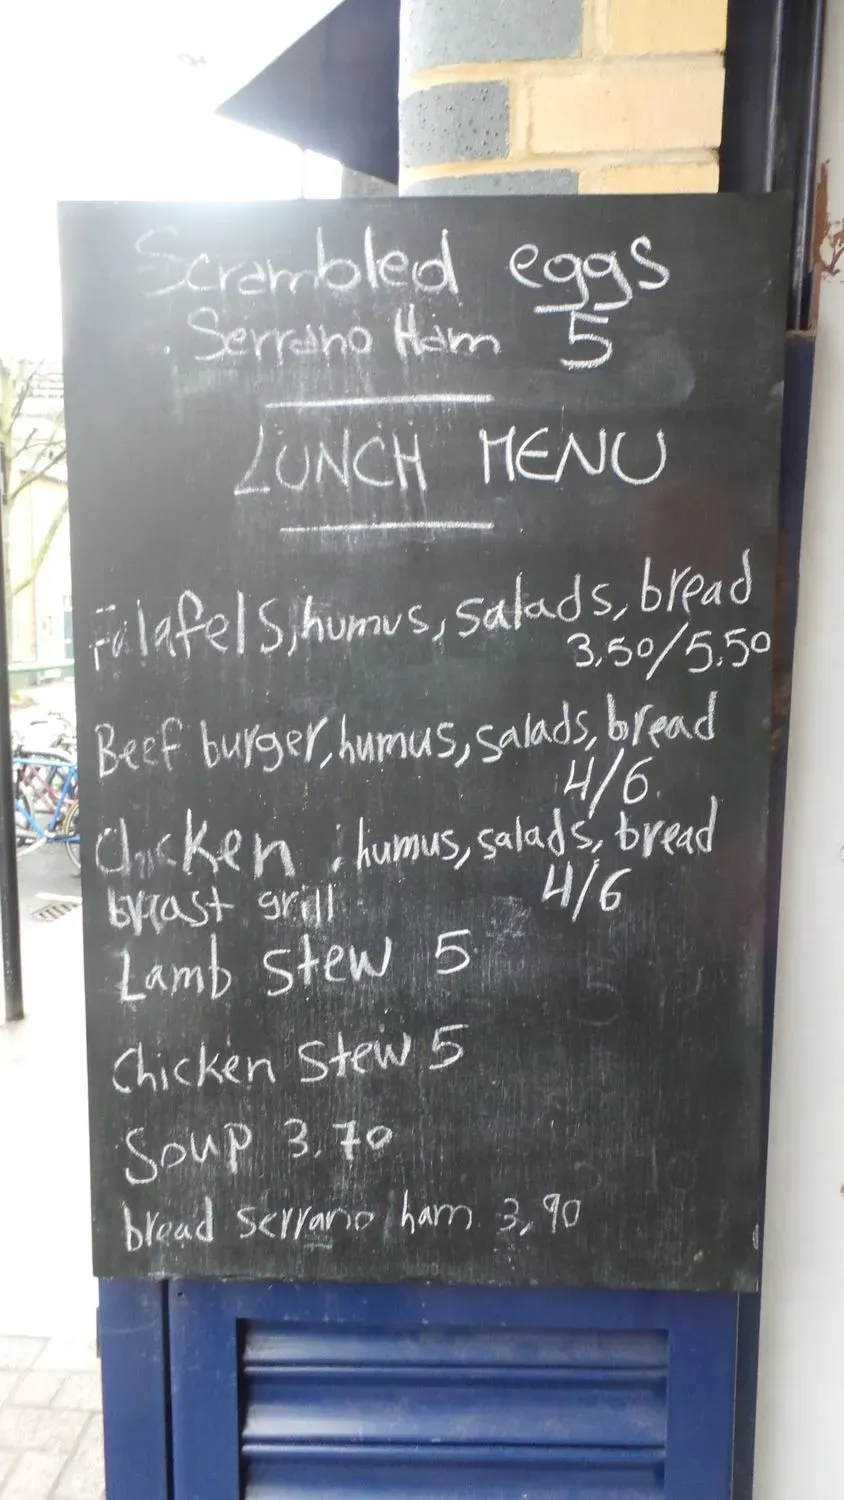 Scrambled eggs
Serrano Ham 5
LUNCH MENU
Falafels, humus, salads, bread
3.50/5.50
Beef burger, humus, salads, bread
4/6.
Chicken , humus, salads, bread
breast grill 4/6
Lamb stew 5
Chicken stew 5
Soup 3.70
bread serrano ham 3,90